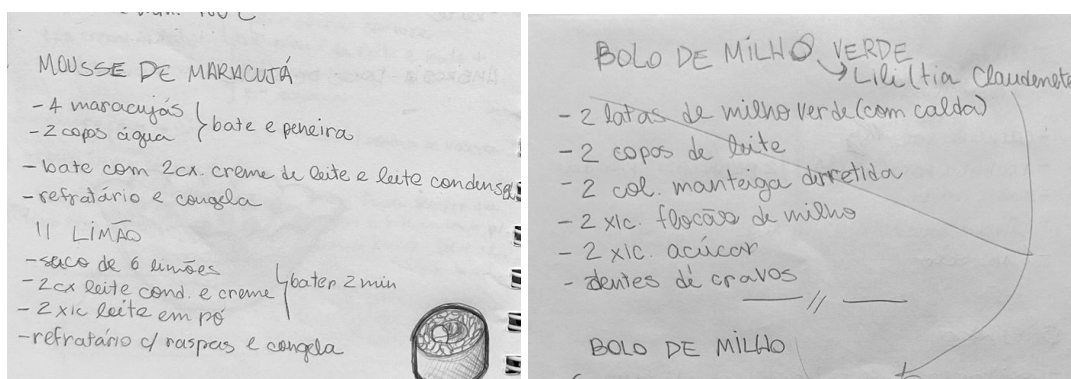 MOUSSE DE MARACUJÁ
- 4 maracujás
- 2 copos água } bate e peneira
- bate com 2cx. creme de leite e leite condensa
- refratário e congela
11 LIMÃO
- suco de 6 limões
- 2cx leite cond. e creme } bater 2 min
- 2 xic leite em pó
- refratário c/ raspas e congela
BOLO DE MILHO VERDE
→ Lili (tia Claudenete
- 2 latas de milho verde (com calda)
- 2 copos de leite
- 2 col. manteiga dirretida
- 2 xic. flocão de milho
- 2 xic. acúcar
- dentes de cravos
//
BOLO DE MILHO